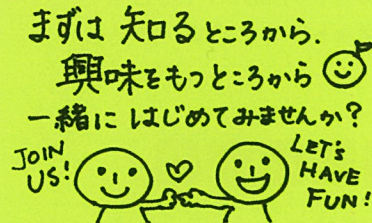 まずは 知るところから.
興味をもつところから
一緒に はじめてみませんか?
JOIN
US!
LET'S
HAVE
FUN!